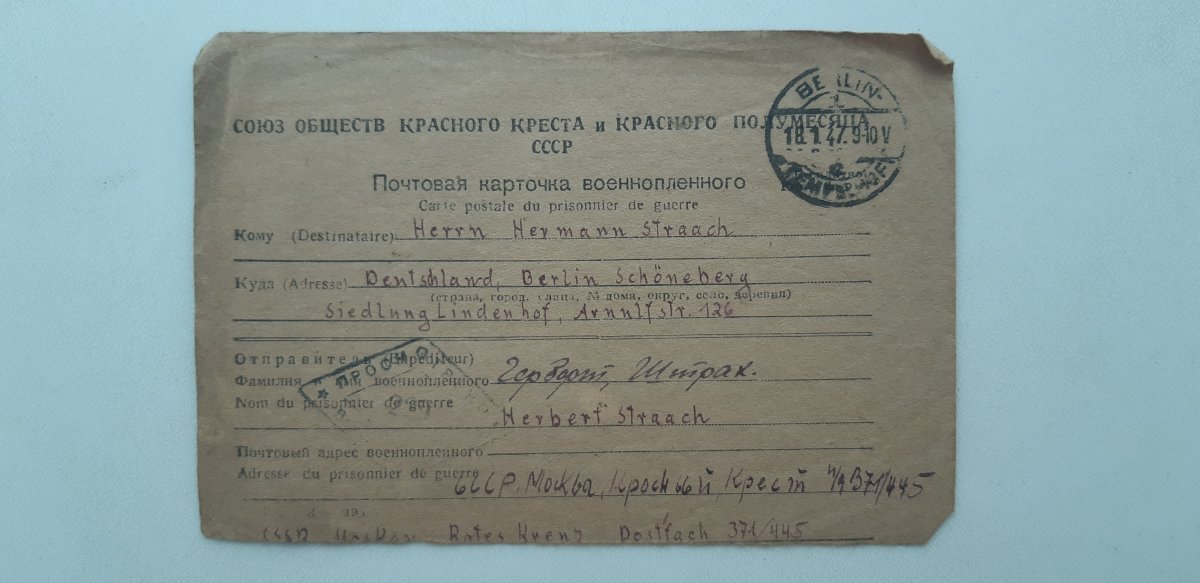 СОЮЗ ОБЩЕСТВ КРАСНОГО КРЕСТА и КРАСНОГО ПОЛУМЕСЯЦА
СССР
BERLIN-
1
18.1.47.9-10V
TEMPELHOF
Почтовая карточка военнопленного
Carte postale du prisonnier de guerre
Кому (Destinataire) Herrn Hermann Straach
Куда (Adresse) Deutschland, Berlin Schöneberg
(страна, город, улица, № дома, округ, село, деревня)
Siedlung Lindenhof, Arnulfstr. 126
Отправитель (Expéditeur)
ПРОСМО
Фамилия и имя военнопленного Герберт, Штрах.
Nom du prisonnier de guerre
Herbert Straach
Почтовый адрес военнопленного
Adresse du prisonnier de guerre
СССР, Москва, Кросный, Крест п/я 371/445
Rotes Kreuz Postfach 371/445